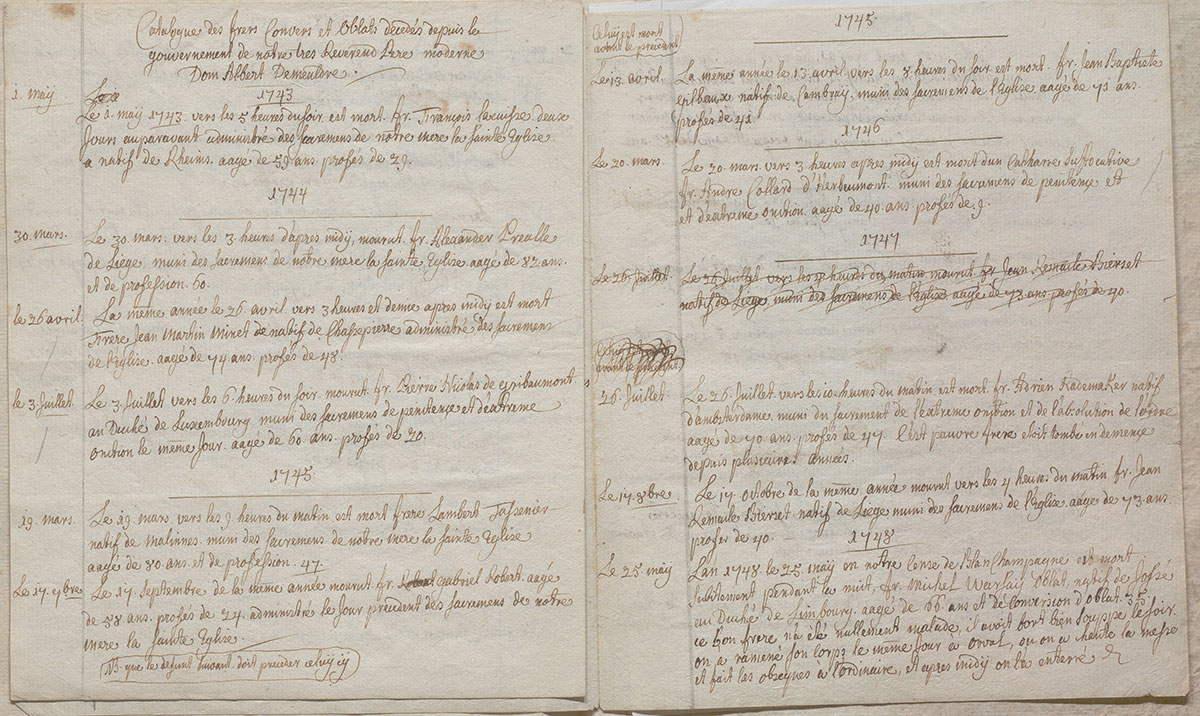 Catalogue des frers Convers et Oblats décedés depuis le
gouvernement de notre tres Reverend Pere moderne
Dom Albert Demeuldre.
1743
1. maÿ
Le 1. maÿ 1743 vers les 5 heures du soir est mort fr. François Lacuisse. deux
Jours auparavant administré des sacremens de notre mere la sainte Eglise
a natif de Rheims. aagé de 59 ans. profés de 29.
1744
30. mars.
Le 30. mars. vers les 3. heures d'apres midÿ, mourut fr. Alexander Prealle
de Liége, muni des sacremens de notre mere la sainte Eglise aagé de 82 ans.
et de profession. 60.
le 26 avril.
La même année le 26. avril vers 3 heures et demie apres midÿ est mort
Frere Jean Martin Minet de natif de Chassepierre administré des sacremens
de l'église. aagé de 74 ans. profés de 48.
le 3. Juillet.
Le 3. Juillet vers les 6. heures du soir mourut fr. Pierre Nicolas de gribaumont
au Duché de Luxembourg, muni des sacremens de penitence et d'extreme
onction le même jour. aagé de 60 ans. profés de 20.
1745
19. mars.
Le 19. mars vers les 9 heures du matin est mort frere Lambert
natif de Malinnes. muni des sacremens de notre mere la sainte Eglise
aagé de 80 ans et de profession. 47.
Le 17. 7bre
Le 17. Septembre de la même année mourut fr. gabriel Robert. aagé
de 58 ans. profés de 24. administré le jour precedent des sacremens de notre
mere la sainte Eglise.
NB. que le defunt suivant doit preceder celuy cy
1745.
Celuy est mort
avant le precedent
Le 13. avril.
La même année le 13. avril vers les 8. heures du soir est mort. fr. Jean Baptiste
natif de Cambray, muni des sacremens de l'Eglise, aagé de 71 ans.
profés de 41.
1746
Le 20. mars.
Le 20. mars vers 3. heures apres midÿ est mort d'un Catharre Suffocative
fr. Andre Collard d'Herbeumont. muni des sacremens de penitence et
et d'extreme onction. aagé de 40 ans. profés de 9.
1747
Le 26 Juillet
Le 26 Juillet vers les heures du matin mourut fr Jean Remacle Bierset
natif de Liege muni des sacremens de l'Eglise aagé de 73 ans profés de 40.
avant le precedent
26. Juillet
Le 26. Juillet vers les 10. heures du matin est mort. fr. Adrien Rademaker natif
d'amsterdame. muni du sacrement de l'extreme onction et de l'absolution de l'ordre
aagé de 70 ans. profés de 47. C'est pauvre frere etoit tombé en demence
depuis plusieures années.
Le 17. 8bre.
Le 17. octobre de la même année mourut vers les 4 heures du matin fr. Jean
Remacle Bierset natif de Liege muni des sacremens de l'Eglise. aagé de 73 ans
profés de 40.
1748
Le 25. maÿ
L'an 1748 le 25. maÿ en notre Cense de Blanchampagne est mort
subitement pendant la nuit, fr. Michel Oblat, natif de
au Duché de Limbourg. aagé de 66. ans et de conversion d'oblat. 35.
ce bon frere n'a été nullement malade, il avoit fort bien souppé le soir.
on a ramené son corps le même jour a orval, ou on a chanté la messe
et fait les obseques à l'ordinaire, et apres midÿ on l'a enterré